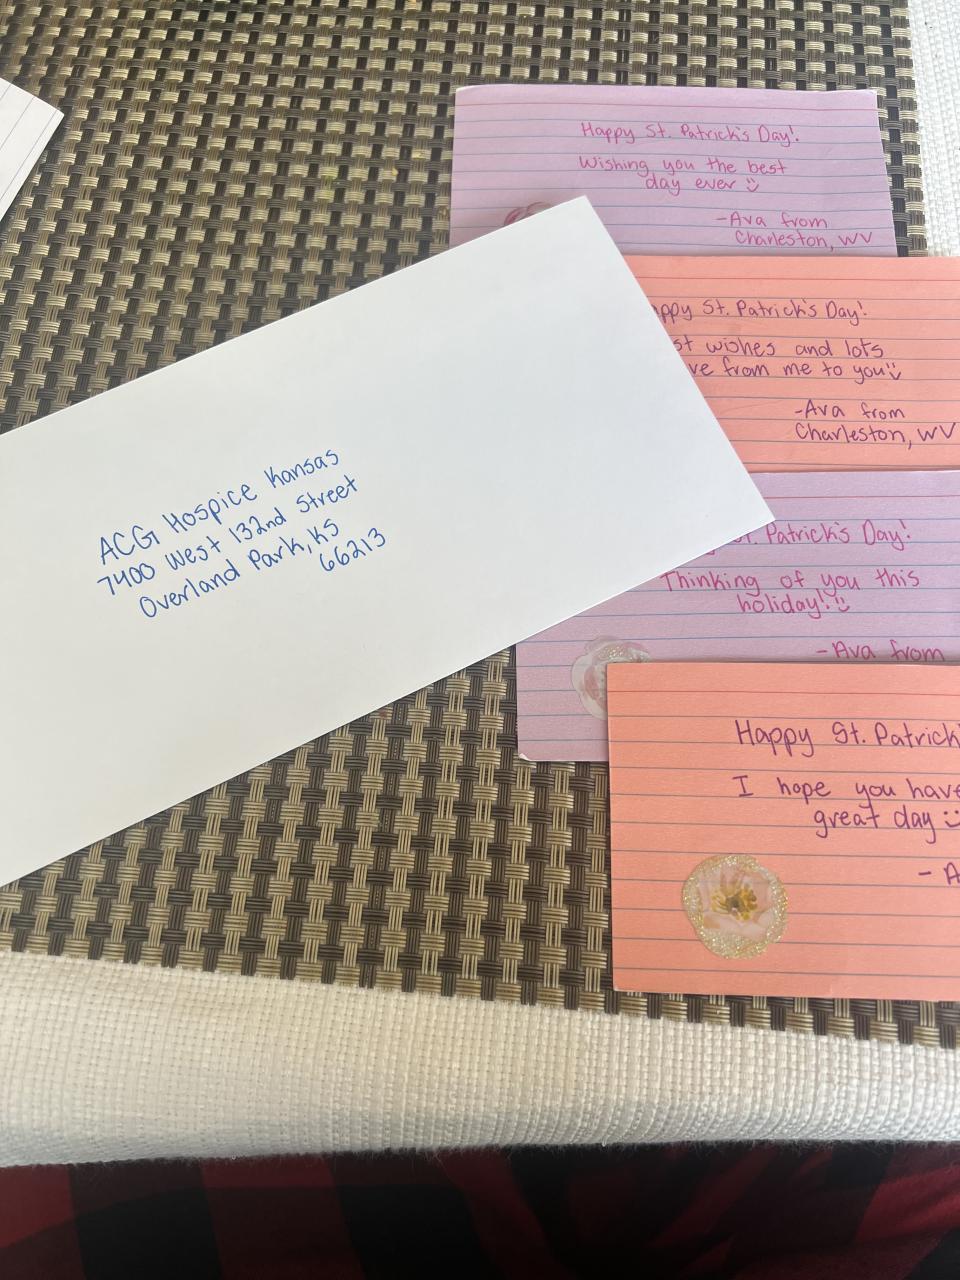 Happy St. Patrick's Day!
Wishing you the best
day ever
-Ava from
Charleston, WV
St. Patrick's Day!
wishes and lots
from me to you
-Ava from
Charleston, WV
Patrick's Day!
Thinking of you this
holiday!
-Ava from
Happy St. Patrick
I hope you have
great day
-
ACG Hospice Kansas
7400 West 132nd Street
Overland Park, KS
66213